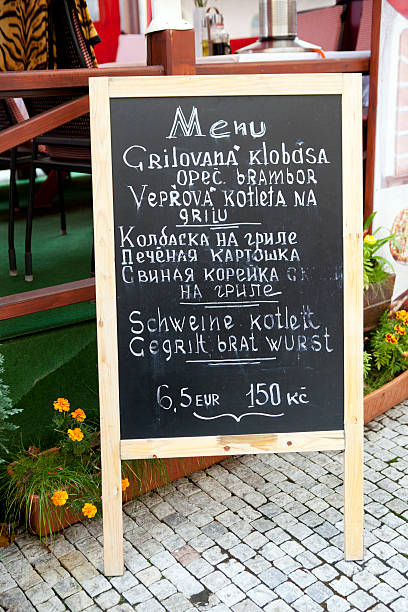 Menu
Grilovaná klobása
opeč. brambor
Vepřová kotleta na
grilu
Колбаска на гриле
Печёная картошка
Свиная корейка
на гриле
Schweine kotlett
Gegrilt bratwurst
6,5 EUR 150 Kč